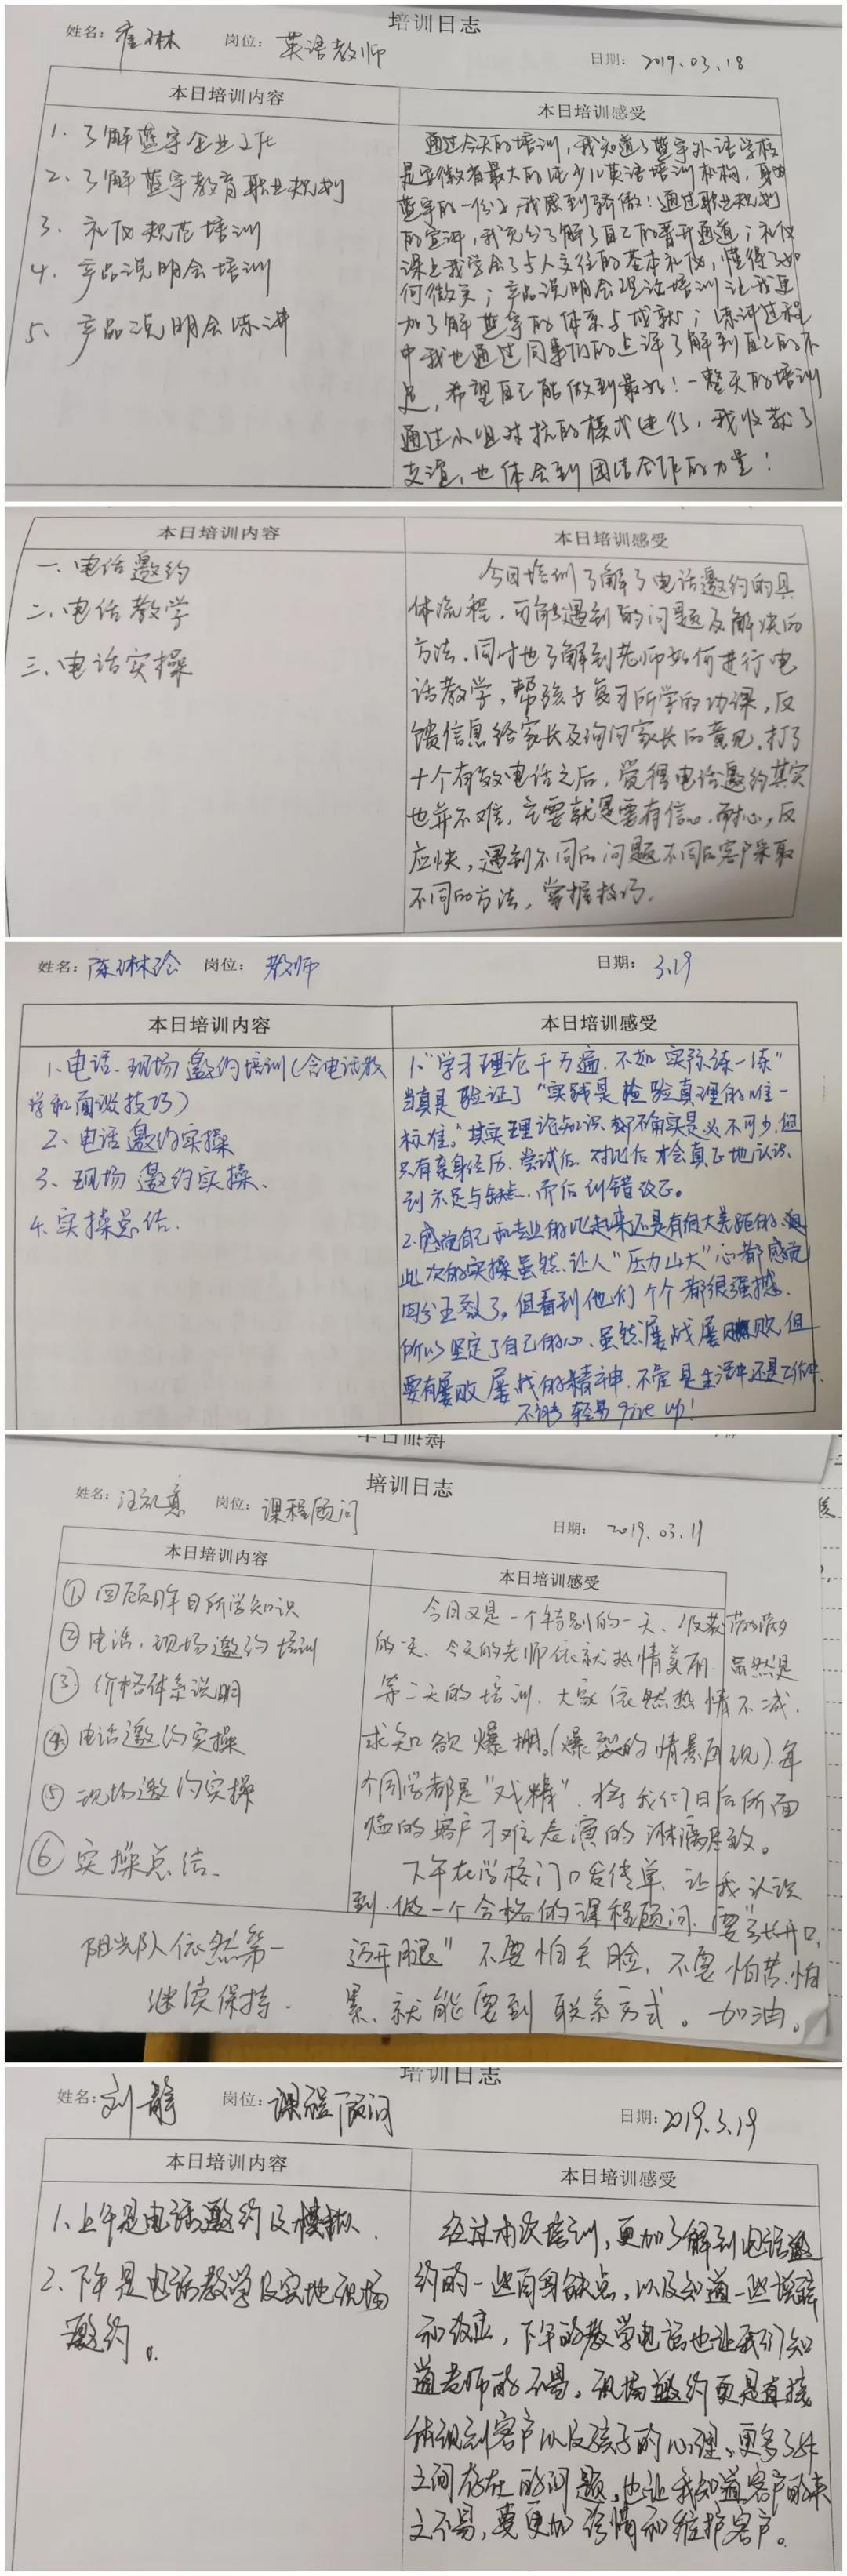 培训日志
姓名：崔琳 岗位：英语教师 日期：2019.03.18
本日培训内容
1. 了解蓝宇企业文化
2. 了解蓝宇教育职业规划
3. 礼仪规范培训
4. 产品说明会培训
5. 产品说明会演讲
本日培训感受
通过今天的培训，我知道了蓝宇外语学校
是安徽省最大的少儿英语培训机构，身为
蓝宇的一份子，我感到骄傲！通过职业规划
的宣讲，我充分了解了自己的晋升通道；礼仪
课上我学会了与人交往的基本礼仪，懂得了如
何微笑；产品说明会理论培训让我更
加了解蓝宇的体系与成就；演讲过程
中我也通过同事们的点评了解到自己的不
足，希望自己能做到最好！一整天的培训
通过小组对抗的模式进行，我收获了
友谊，也体会到团结合作的力量！
本日培训内容
一、电话邀约
二、电话教学
三、电话实操
本日培训感受
今日培训了解了电话邀约的具
体流程，可能遇到的问题及解决的
方法。同时也了解到老师如何进行电
话教学，帮孩子复习所学的功课，反
馈信息给家长及询问家长的意见。打了
十个有效电话之后，觉得电话邀约其实
也并不难，主要就是要有信心，耐心，反
应快，遇到不同的问题不同的客户采取
不同的方法，掌握技巧。
姓名：陈琳玲 岗位：教师 日期：3.19
本日培训内容
1、电话、现场邀约培训（含电话教
学和面谈技巧）
2、电话邀约实操
3、现场邀约实操、
4、实操总结.
本日培训感受
1."学习理论千万遍，不如实际练一练"
当真是验证了"实践是检验真理的唯一
标准。"其实理论知识都不确实是必不可少，但
只有亲身经历、尝试后、对比后才会真正地认识
到不足与缺点，而后纠错改正。
2.感觉自己和专业的比起来还是有很大差距的，
此次的实操虽然让人"压力山大"心都感觉
四分五裂了。但看到他们个个都很强撼.
所以坚定了自己的心、虽然屡战屡败，但
要有屡败屡战的精神，不管是生活中还是工作中、
不能轻易give up！
培训日志
姓名：汪 岗位：课程顾问 日期：2019.03.19
本日培训内容
①回顾昨日所学知识
②电话，现场邀约培训
③价格体系说明
④电话邀约实操
⑤现场邀约实操
⑥实操总结.
阳光队依然第一
继续保持.
本日培训感受
今日又是一个特别的一天、收获满满
的一天、今天的老师依就热情美丽。虽然是
第二天的培训、大家依然热情不减，
求知欲爆棚。（爆裂的情景再现）.每
个同学都是"戏精"，将我们日后所面
临的客户刁难表演的淋漓尽致。
下午在学校门口发传单、让我认识
到.做一个合格的课程顾问，要"张开口，
迈开腿"不要怕丢脸，不要怕苦.怕
累、就能要到联系方式。加油。
培训日志
姓名：刘静 岗位：课程顾问 日期：2019.3.19
本日培训内容
1、上午是电话邀约及模拟.
2、下午是电话教学及实地现场
邀约。
本日培训感受
经过本次培训，更加了解到电话邀
约的一些自身缺点，以及知道一些
和效应，下午的教学电话也让我们知
道老师的不易，现场邀约更是直接
体现到客户以及孩子的心理、更多了解
之间存在的问题，也让我知道客户的来
之不易，要更加珍惜和维护客户。